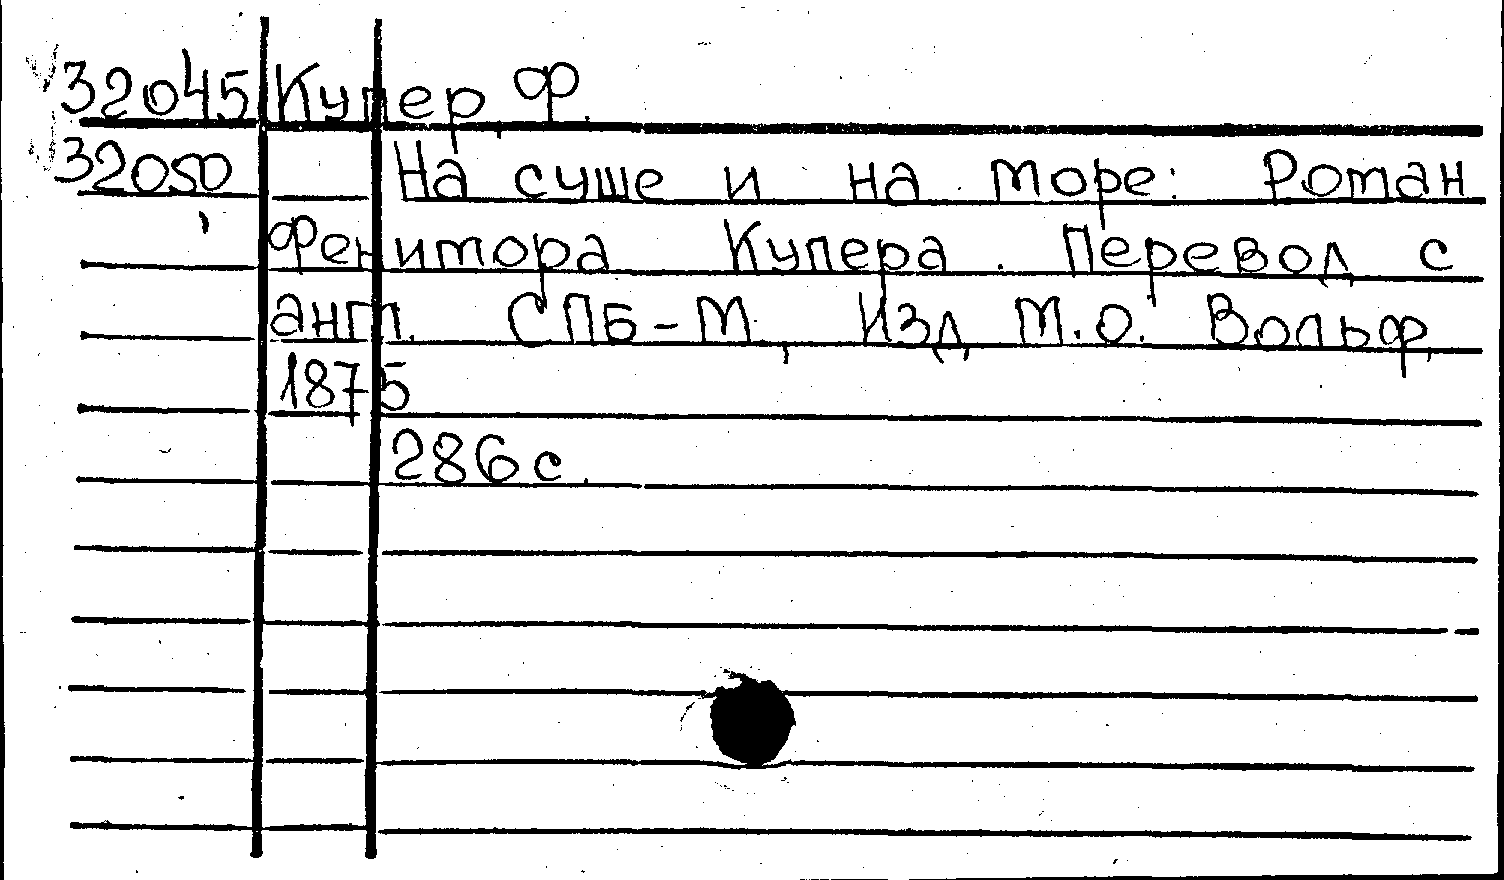 32045 Купер, Ф.
32050 На суше и на море: Роман
Фенитора Купера. Перевод с
англ. СПБ-М, Изд М.О. Вольф,
1875
286 с.